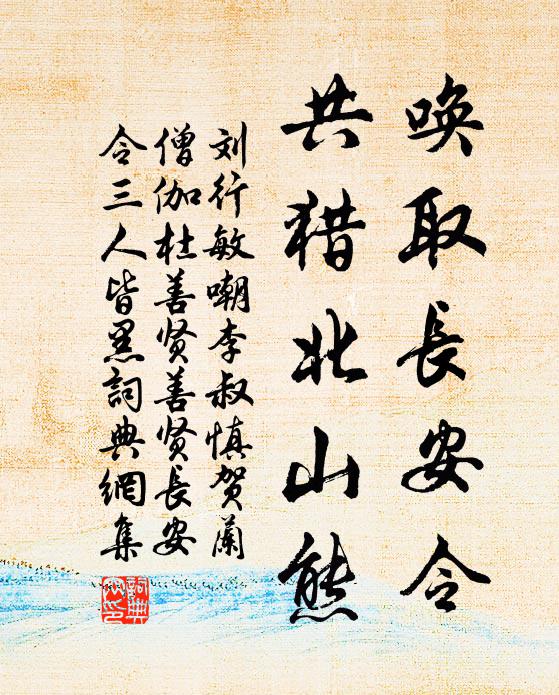 唤取长安令
共猎北山熊
刘行敏嘲李叔慎贺兰
僧伽杜善贤善贤长安
令三人皆黑詞典網集